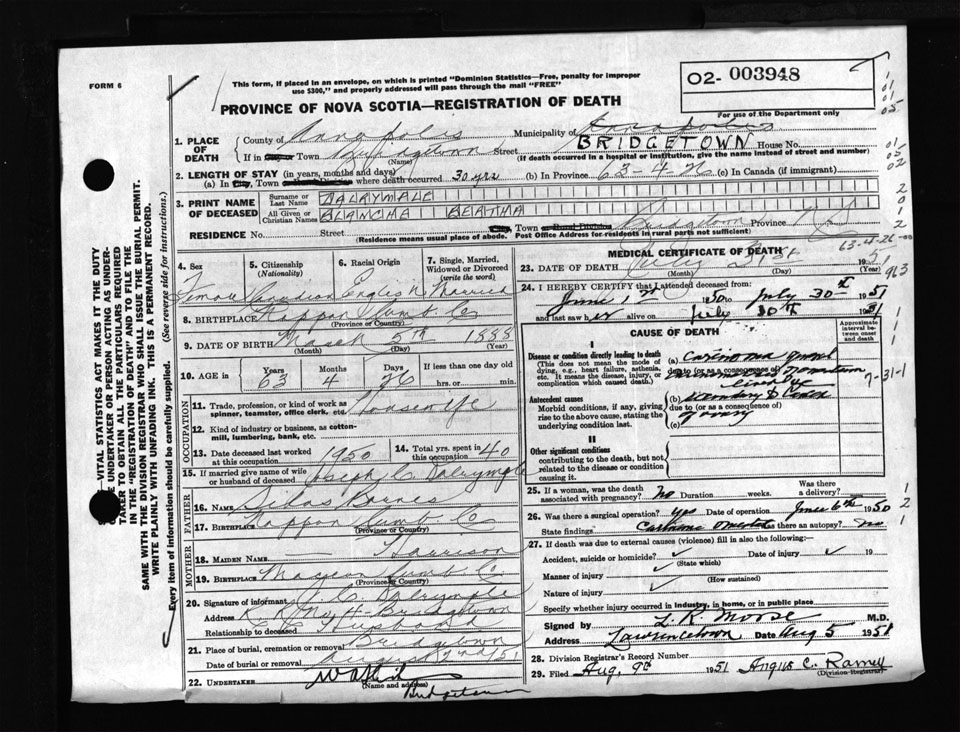 FORM 6
This form, if placed in an envelope, on which is printed "Dominion Statistics—Free, penalty for improper
use $300," and properly addressed will pass through the mail "FREE"
O2- 003948
For use of the Department only
PROVINCE OF NOVA SCOTIA—REGISTRATION OF DEATH
1. PLACE OF DEATH
County of Annapolis Municipality of Annapolis
If in Town Bridgetown Street BRIDGETOWN House No.
(Name) (If death occurred in a hospital or institution, give the name instead of street and number)
2. LENGTH OF STAY (in years, months and days)
(a) In City, Town where death occurred 30 yrs (b) In Province 63-4-26 (c) In Canada (if immigrant)
3. PRINT NAME OF DECEASED
Surname or Last Name DALRYMPLE
All Given or Christian Names BLANCHE BERTHA
RESIDENCE No. Street City, Town Bridgetown Province N S
(Residence means usual place of abode. Post Office Address for residents in rural parts not sufficient)
63-4-26
4. Sex
Female
5. Citizenship (Nationality)
Canadian
6. Racial Origin
English
7. Single, Married, Widowed or Divorced (write the word)
Married
8. BIRTHPLACE Nappan Cumb. Co
(Province or Country)
9. DATE OF BIRTH March 5th 1888
(Month) (Day) (Year)
10. AGE in Years Months Days If less than one day old
63 4 26 hrs. or min.
OCCUPATION
11. Trade, profession, or kind of work as spinner, teamster, office clerk, etc. Housewife
12. Kind of industry or business, as cotton-mill, lumbering, bank, etc.
13. Date deceased last worked at this occupation 1950
14. Total yrs. spent in this occupation 40
15. If married give name of wife or husband of deceased Joseph C. Dalrymple
FATHER
16. Name Silas Barnes
17. Birthplace Nappan Cumb. Co
(Province or Country)
MOTHER
18. Maiden Name Harrison
19. Birthplace Cumb. Co.
(Province or Country)
20. Signature of informant J. C. Dalrymple
Address Bridgetown
Relationship to deceased Husband
21. Place of burial, cremation or removal Bridgetown
Date of burial or removal August 2nd 1951
22. UNDERTAKER
(Name and address)
Bridgetown
MEDICAL CERTIFICATE OF DEATH
23. DATE OF DEATH July 31st 1951
(Month) (Day) (Year)
24. I HEREBY CERTIFY that I attended deceased from:
June 1st 1950 to July 30th 1951
and last saw her alive on July 30th 1951
CAUSE OF DEATH
Approximate interval between onset and death
I
Disease or condition directly leading to death
(This does not mean the mode of dying, e.g., heart failure, asthenia, etc. It means the disease, injury, or complication which caused death.)
(a)
due to (or as a consequence of)
Antecedent causes
Morbid conditions, if any, giving rise to the above cause, stating the underlying condition last.
(b)
due to (or as a consequence of)
(c)
7-31-1
II
Other significant conditions
contributing to the death, but not related to the disease or condition causing it.
25. If a woman, was the death associated with pregnancy? No Duration weeks. Was there a delivery?
26. Was there a surgical operation? yes Date of operation June 6th 1950
State findings Was there an autopsy? no
27. If death was due to external causes (violence) fill in also the following:
Accident, suicide or homicide? Date of injury 19
(State which)
Manner of injury
(How sustained)
Nature of injury
Specify whether injury occurred in industry, in home, or in public place
Signed by L. R. Morse M.D.
Address Lawrencetown Date Aug 5 1951
28. Division Registrar's Record Number
29. Filed Aug. 9th 1951 Angus C. Ramey
(Division Registrar)
TAKER TO OBTAIN ALL THE PARTICULARS REQUIRED
IN THE "REGISTRATION OF DEATH" AND TO FILE THE
SAME WITH THE DIVISION REGISTRAR WHO SHALL ISSUE THE BURIAL PERMIT.
WRITE PLAINLY WITH UNFADING INK. THIS IS A PERMANENT RECORD.
Every item of information should be carefully supplied. (See reverse side for instructions.)